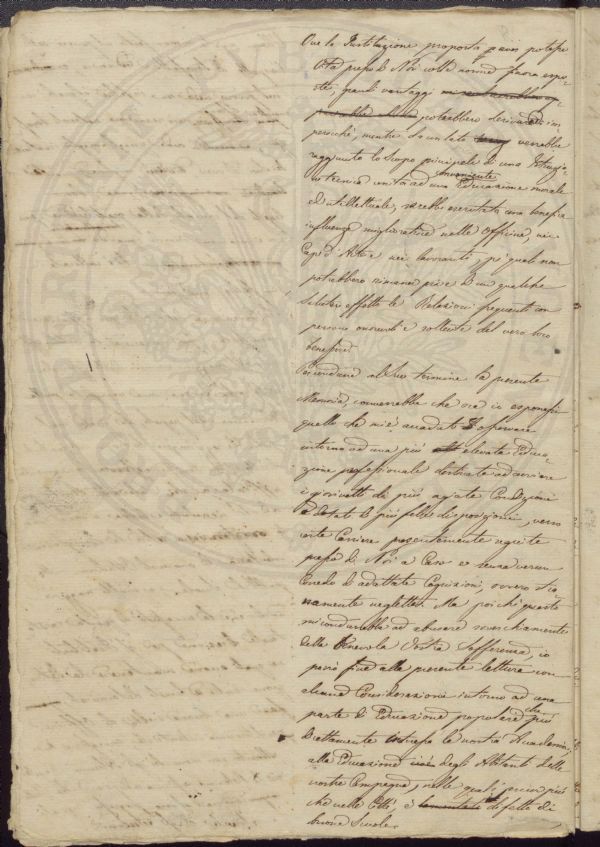 Ove la Instituzione proposta
Città presso di Noi colle norme sovra espo-
ste, grandi vantaggi
potrebbero derivare im-
perocchè, mentre da un lato verrebbe
raggiunto lo Scopo principale di una Istruzio-
ne tecnica unita ad una conveniente Educazione morale
ed intellettuale, sarebbe esercitata una benefica
influenza miglioratrice nelle Officine, nei
Capi d'Arte e nei lavoranti, pei quali non
potrebbero rimaner prive di un qualche
Salutar effetto le Relazioni frequenti con
persone onorevoli e sollecite del vero loro
benessere.
al suo termine la presente
Memoria, converrebbe che ora io esponessi
quello che mi è accaduto di osservare
intorno ad una più elevata Educa-
zione professionale destinata ad
i giovinetti di più agiata Condizione
e dotati di più felici disposizioni, verso
certe Carriere presentemente seguite
presso di Noi a Caso e senza verun
Corredo di adattate Cognizioni, ovvero
namente neglette. Ma poichè questo
mi condurrebbe ad abusare soverchiamente
della benevola Vostra Sofferenza, io
porrò fine alla presente lettura con
alcune Considerazioni intorno ad una
parte di Educazione popolare che più
direttamente interessa la nostra Accademia,
alla Educazione cioè degli Abitanti delle
nostre Campagne, nelle quali, più
che nelle Città, è difetto di
buone Scuole.